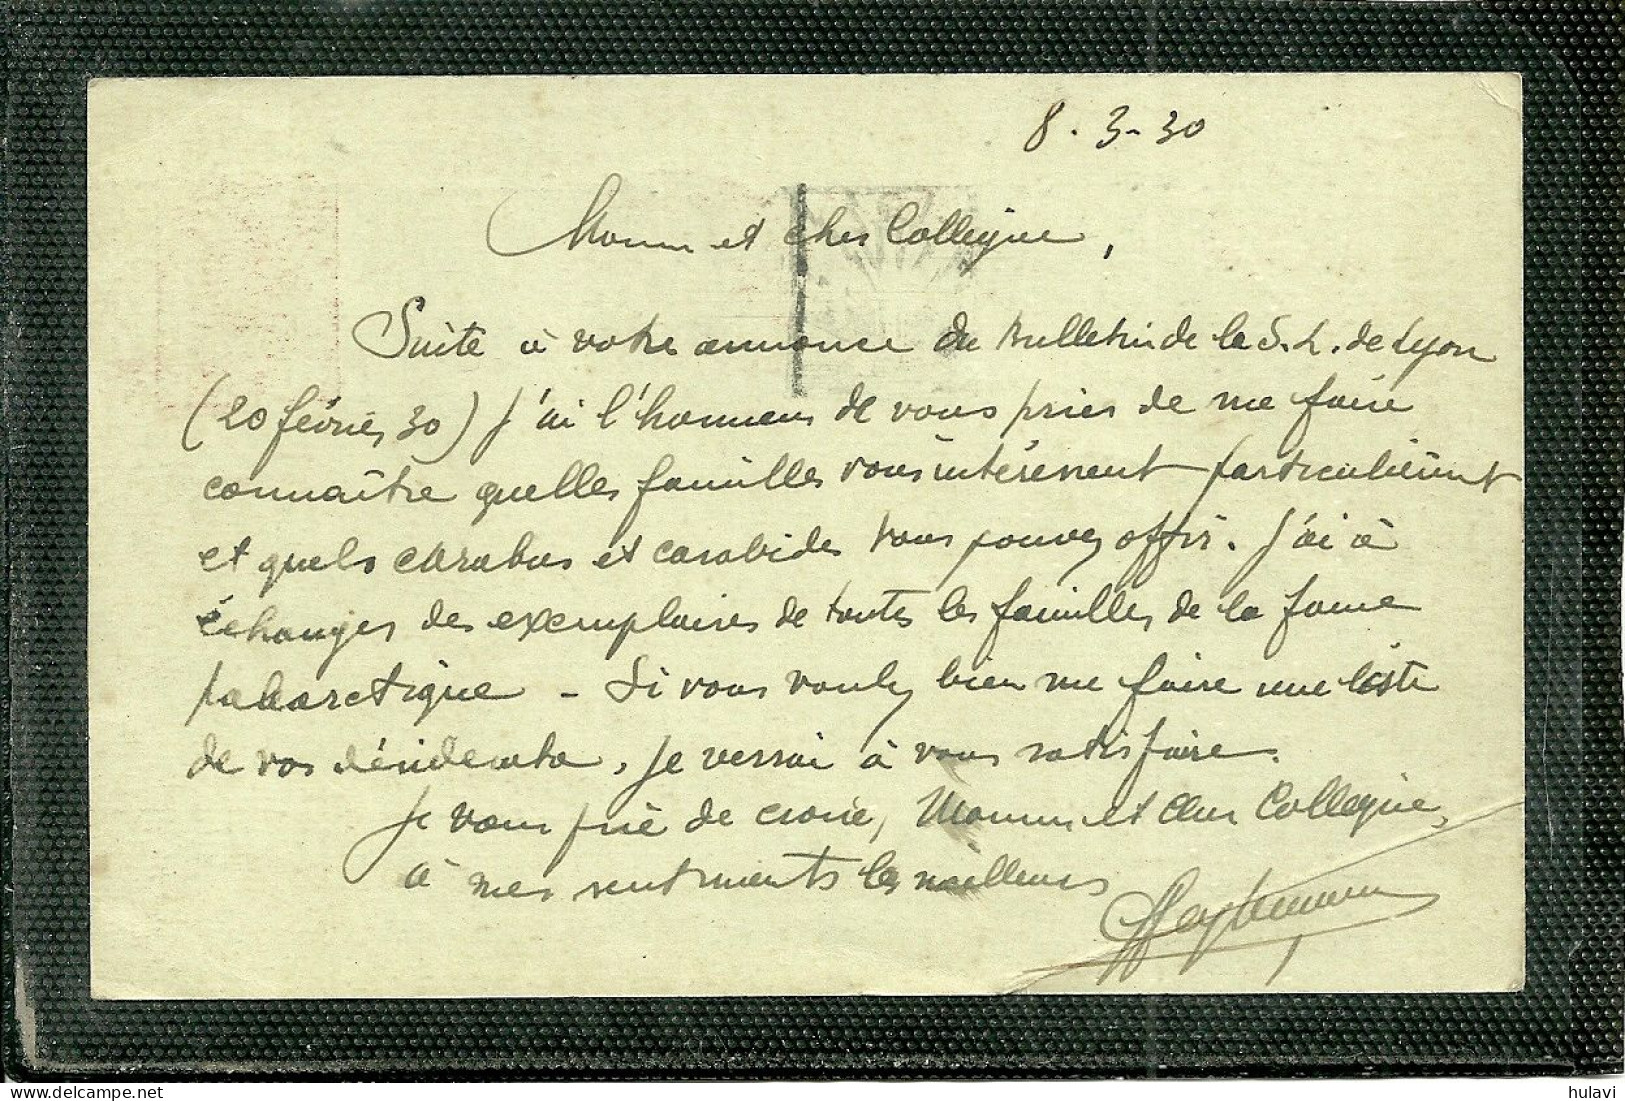 8.3.30
Monsieur et cher Collègue,
Suite à votre annonce du Bulletin de la S.L. de Lyon
(20 février 30) j'ai l'honneur de vous prier de me faire
connaître quelles familles vous intéressent particulièrement
et quels carabus et carabides vous pouvez offrir. J'ai à
échanger des exemplaires de toutes les familles de la faune
paléarctique - Si vous voulez bien me faire une liste
de vos désiderata, je verrai à vous satisfaire.
Je vous prie de croire, Monsieur et cher Collègue,
à mes sentiments les meilleurs
hulavi
delcampe.net